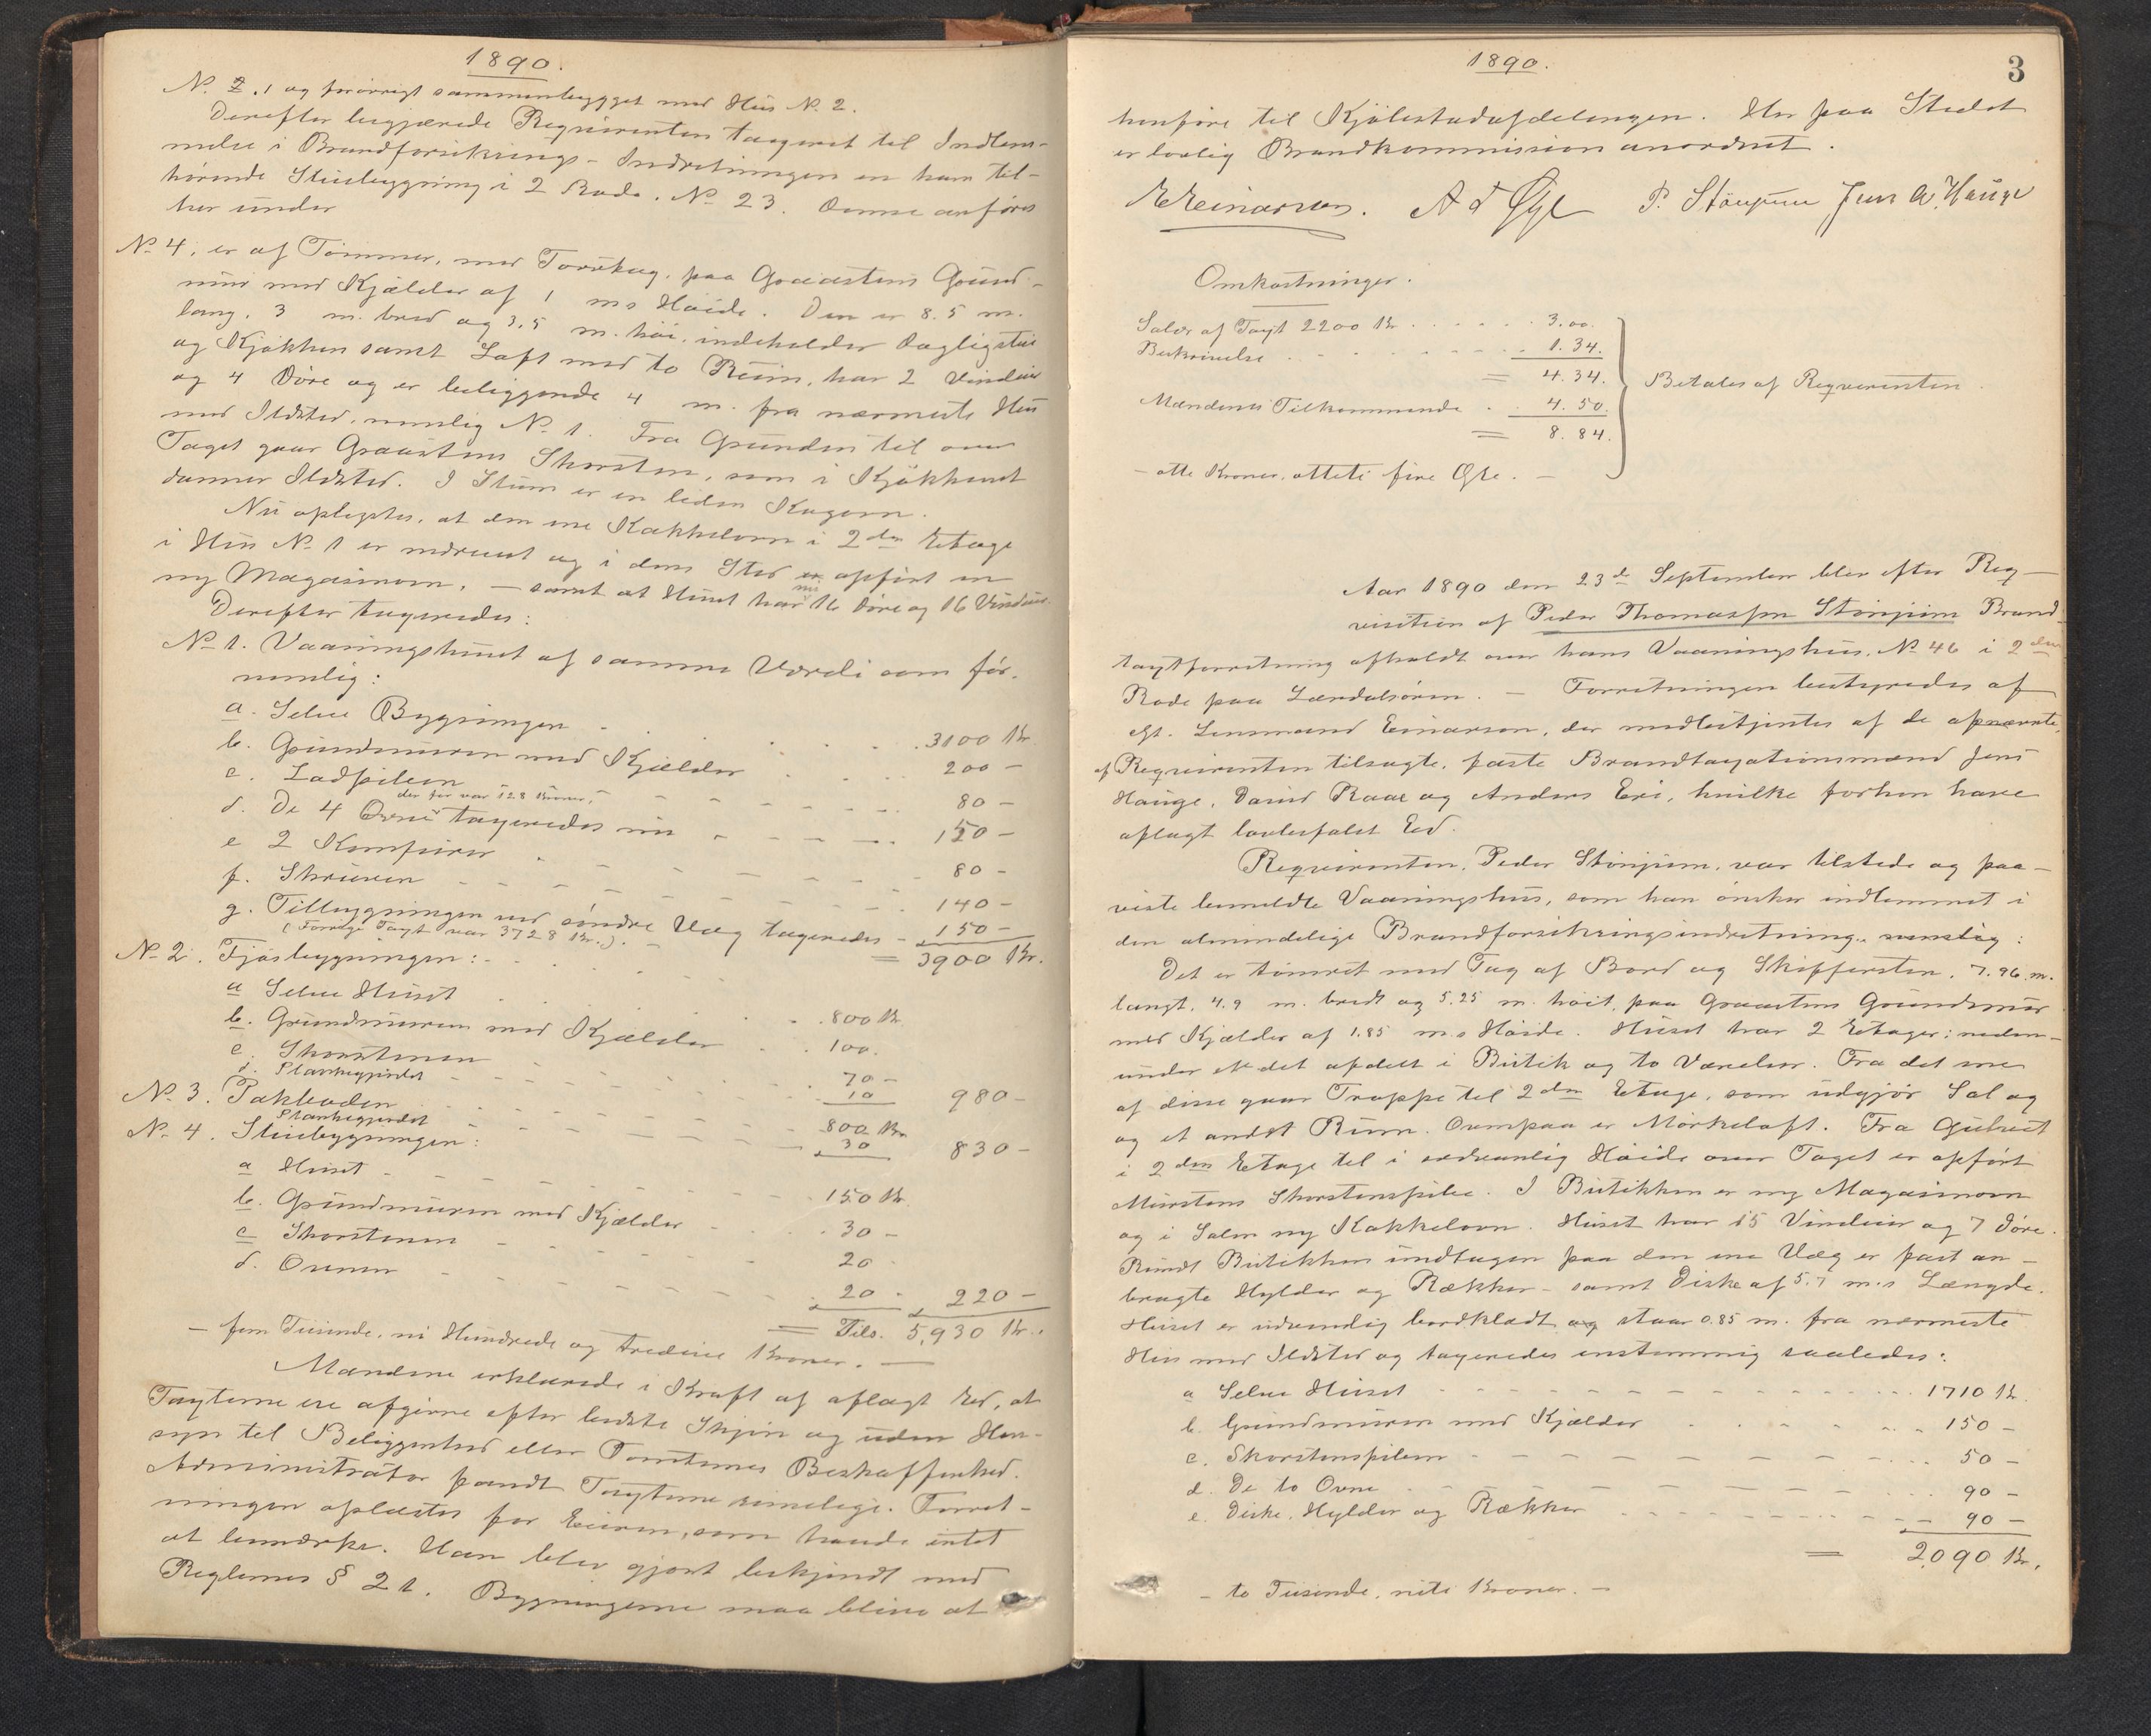 1890.
N. 2. 1 og forøvrigt sammenbygget med Hus N. 2.
Derefter begjærede Reqvirenten taxeret til Indlem-
melse i Brandforsikrings-Indretningen en ham til-
hørende Stuebygning i 2 Rode. N. 23. Denne anføres
her under
N. 4, er af Tømmer, med Torvtag, paa Graastens Grund-
mur med Kjælder af 1 m.s Høide. Den er 8.5 m.
lang, 3 m. bred og 3,5 m. høi, indeholder Dagligstue
og Kjøkken samt Loft med to Rum, har 2 Vinduer
og 4 Døre og er beliggende 4 m. fra nærmeste Hus
med Ildsted, nemlig N. 1. Fra Grunden til over
Taget gaar Graastens Skorsten, som i Kjøkkenet
danner Ildsted. I Stuen er en liden Kogovn.
Nu oplystes, at den ene Kakkelovn i 2den Etage
i Hus N. 1 er nedrevet og i dens Sted er opført en
ny Magasinovn, — samt at Huset har nu 16 Døre og 16 Vinduer.
Derefter taxeredes:
N. 1. Vaaningshuset af samme Værdi som før,
nemlig:
a. Selve Bygningen . . . . 3100 Kr
b. Grundmuren med Kjælder . . . 200 —
c. Ladpiben - - - - 80 —
der før var 128 Kroner,
d. De 4 Ovne taxeredes nu - - - 150 —
e 2 Komfurer - - - - 80 -
f. Skruven - - - - 140 -
g. Tilbygningen ved søndre Væg taxeredes - 150 -
(Forrige Taxt var 3728 Kr.). = 3900 Kr.
N. 2. Fjøsbygningen:
a Selve Huset . . . 800 Kr
b. Grundmuren med Kjælder . . 100.
c. Skorstenen - - - 70 -
d. Plankegjerdet 10 980 -
N. 3. Takladen - - - 800 Kr
Plankegjerdet 30 830 -
N. 4. Stuebygningen:
a Huset - - - 150 Kr
b. Grundmuren med Kjælder . . 30 -
c Skorstenen - - - 20
d. Ovnen - - - 20 - 220 -
= Tils. 5,930 Kr.
— fem Tusinde, ni Hundrede og tredive Kroner. —
Mændene erklærede i Kraft af aflagt Ed, at
Taxterne ere afgivne efter bedste Skjøn og uden Hen-
syn til Beliggenhed eller Tomternes Beskaffenhed.
Administrator fandt Taxterne rimelige. Forret-
ningen oplæstes for Eieren, som havde intet
at bemærke. Han blev gjort bekjendt med
Reglernes § 21. Bygningerne maa blive at
1890.
3
henføre til Kjøbstadafdelingen. Her paa Stedet
er lovlig Brandkommission anordnet.
E Einarsen. A d Øye P. Stønjum Jens A. Hauge
Omkostninger.
Salær af Taxt 2200 Kr . . . . . 3.00.
Beskrivelse . . . . . 1.34.
= 4.34.
Mændenes Tilkommende . . 4.50.
= 8.84.
Betales af Reqvirenten.
— otte Kroner, otteti fire Øre. —
Aar 1890 den 23de September blev efter Reqvi-
sition af Peder Thomassen Stønjum Brand-
taxtforretning afholdt over hans Vaaningshus, No 46 i 2den
Rode paa Lærdalsøren. — Forretningen bestyredes af
cst. Lensmand Einarsen, der medbetjentes af de opnævnte,
af Reqvirenten tilsagte, faste Brandtaxationsmænd Jens
Hauge, David Raae og Anders Eri, hvilke forhen have
aflagt lovbefalet Ed.
Reqvirenten, Peder Stønjum, var tilstede og paa-
viste bemeldte Vaaningshus, som han ønsker indlemmet i
den almindelige Brandforsikringsindretning, nemlig:
Det er tømret med Tag af Bord og Skifersten, 7.96 m.
langt, 4.9 m. bredt og 5.25 m. høit, paa Graastens Grundmur
med Kjælder af 1.85 m.s Høide. Huset har 2 Etager; neden-
under er det afdelt i Butik og to Værelser. Fra det ene
af disse gaar Trappe til 2den Etage, som udgjør Sal og
og et andet Rum. Ovenpaa er Mørkeloft. Fra Gulvet
i 2den Etage til i sedvanlig Høide over Taget er opført
Murstens Skorstenspibe. I Butikken er ny Magasinovn
og i Salen ny Kakkelovn. Huset har 15 Vinduer og 7 Døre.
Rundt Butikken undtagen paa den ene Væg er fast an-
bragte Hylder og Rækker - samt Diske af 5.7 m.s Længde.
Huset er udvendig bordklædt og staar 0.85 m. fra nærmeste
Hus med Ildsted og taxeredes enstemmig saaledes:
a Selve Huset - - - - 1710 Kr.
b. Grundmuren med Kjælder . . . . 150 —
c. Skorstenspiben - - - - 50 —
d. De to Ovne - - - - 90 —
e. Diske, Hylder og Rækker - - - - 90 —
= 2090 Kr.
— to Tusinde, niti Kroner. —